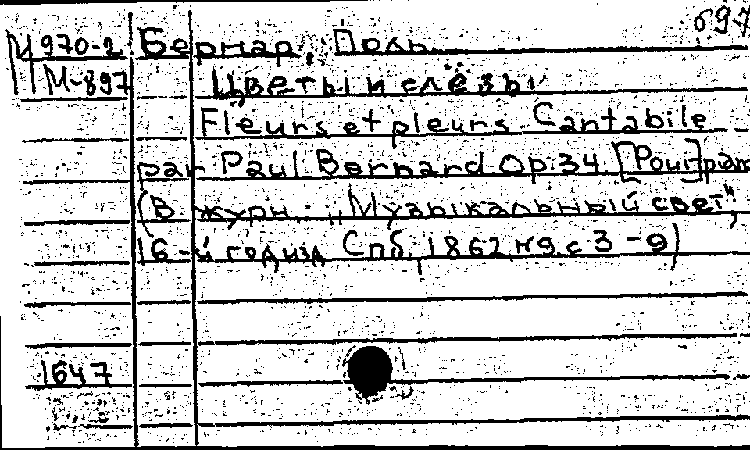 697
М970-2 Бернар, Поль
М-897 Цветы и слёзы
Fleurs et pleurs. Cantabile
par Paul Bernard Op. 34. [Pour] piano
(В журн.: „Музыкальный свет",
16-й год изд. Спб., 1862, №9. с 3-9)
1647